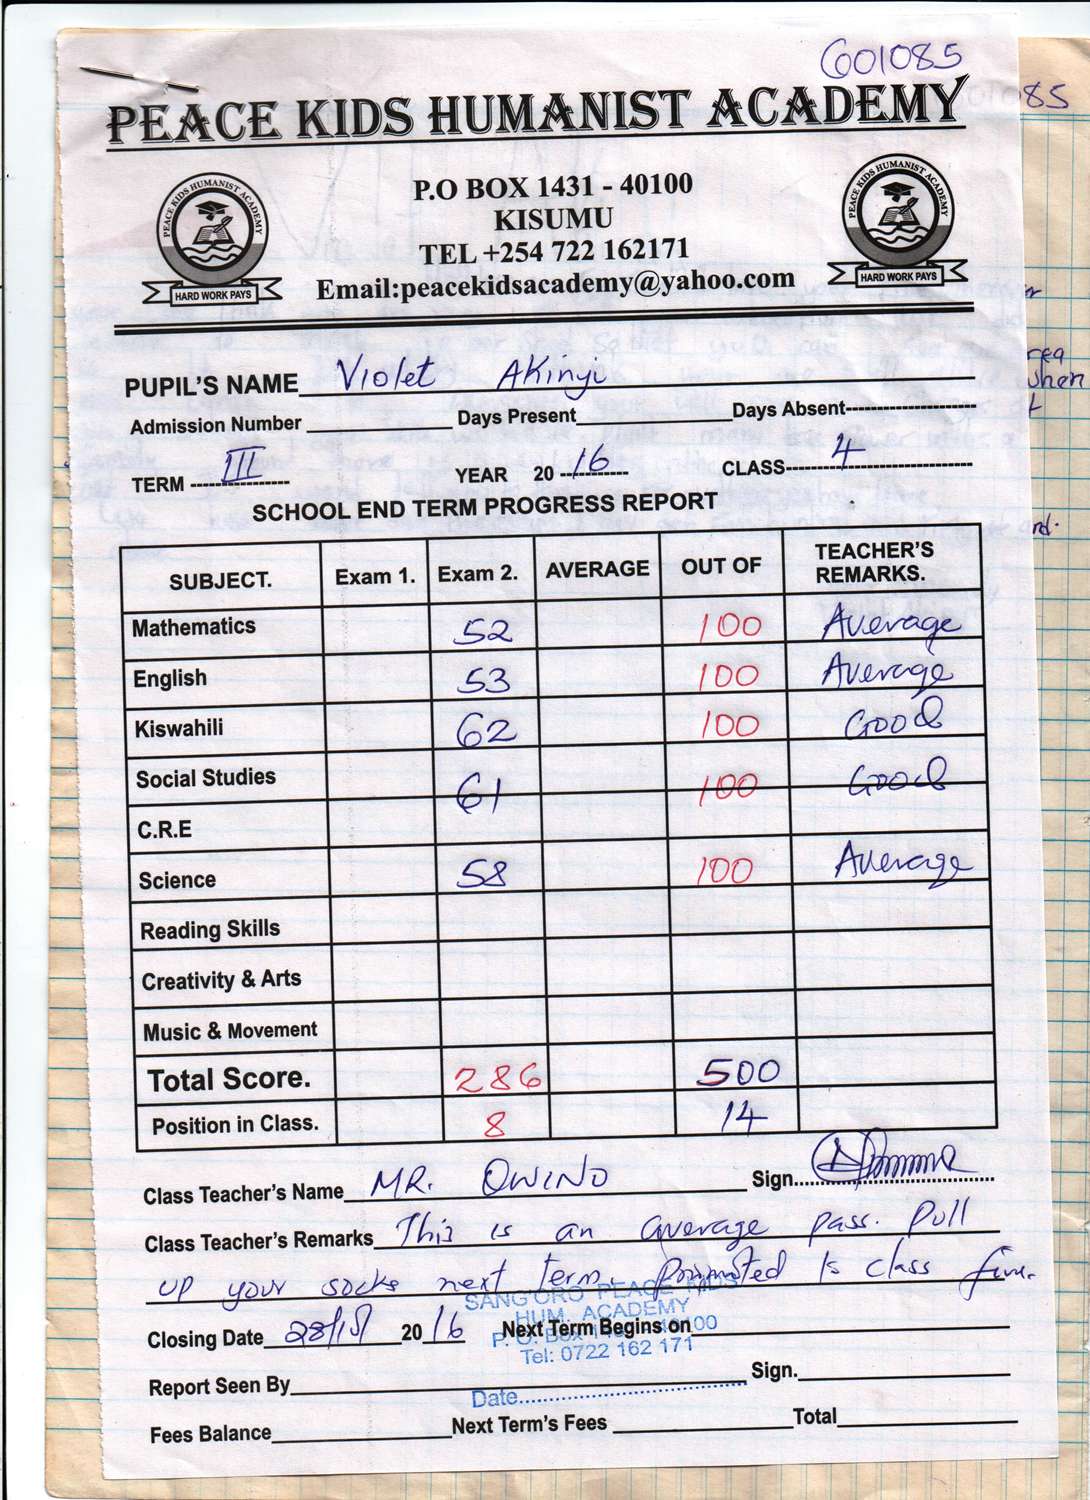 G01085
01085
PEACE KIDS HUMANIST ACADEMY
PEACE KIDS HUMANIST ACADEMY
HARD WORK PAYS
P.O BOX 1431 - 40100
KISUMU
TEL +254 722 162171
Email:peacekidsacademy@yahoo.com
PEACE KIDS HUMANIST ACADEMY
HARD WORK PAYS
PUPIL'S NAME Violet Akinyi
Admission Number Days Present Days Absent
TERM III YEAR 2016 CLASS 4
SCHOOL END TERM PROGRESS REPORT
SUBJECT. Exam 1. Exam 2. AVERAGE OUT OF TEACHER'S REMARKS.
Mathematics 52 100 Average
English 53 100 Average
Kiswahili 62 100 Good
Social Studies 61 100 Good
C.R.E
Science 58 100 Average
Reading Skills
Creativity & Arts
Music & Movement
Total Score. 286 500
Position in Class. 8 14
Class Teacher's Name MR. OWINO Sign.
Class Teacher's Remarks This is an average pass. Pull
up your socks next term. Promoted to class five.
SANG'ORO PEACE KIDS
HUM. ACADEMY
Closing Date 2016 Next Term Begins on
Tel: 0722 162 171
Report Seen By Sign.
Date
Fees Balance Next Term's Fees Total